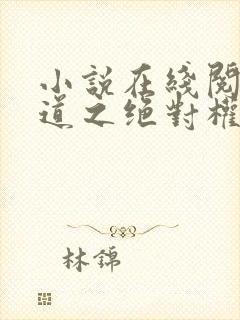 小說在綫閱
道之绝對權
林錦